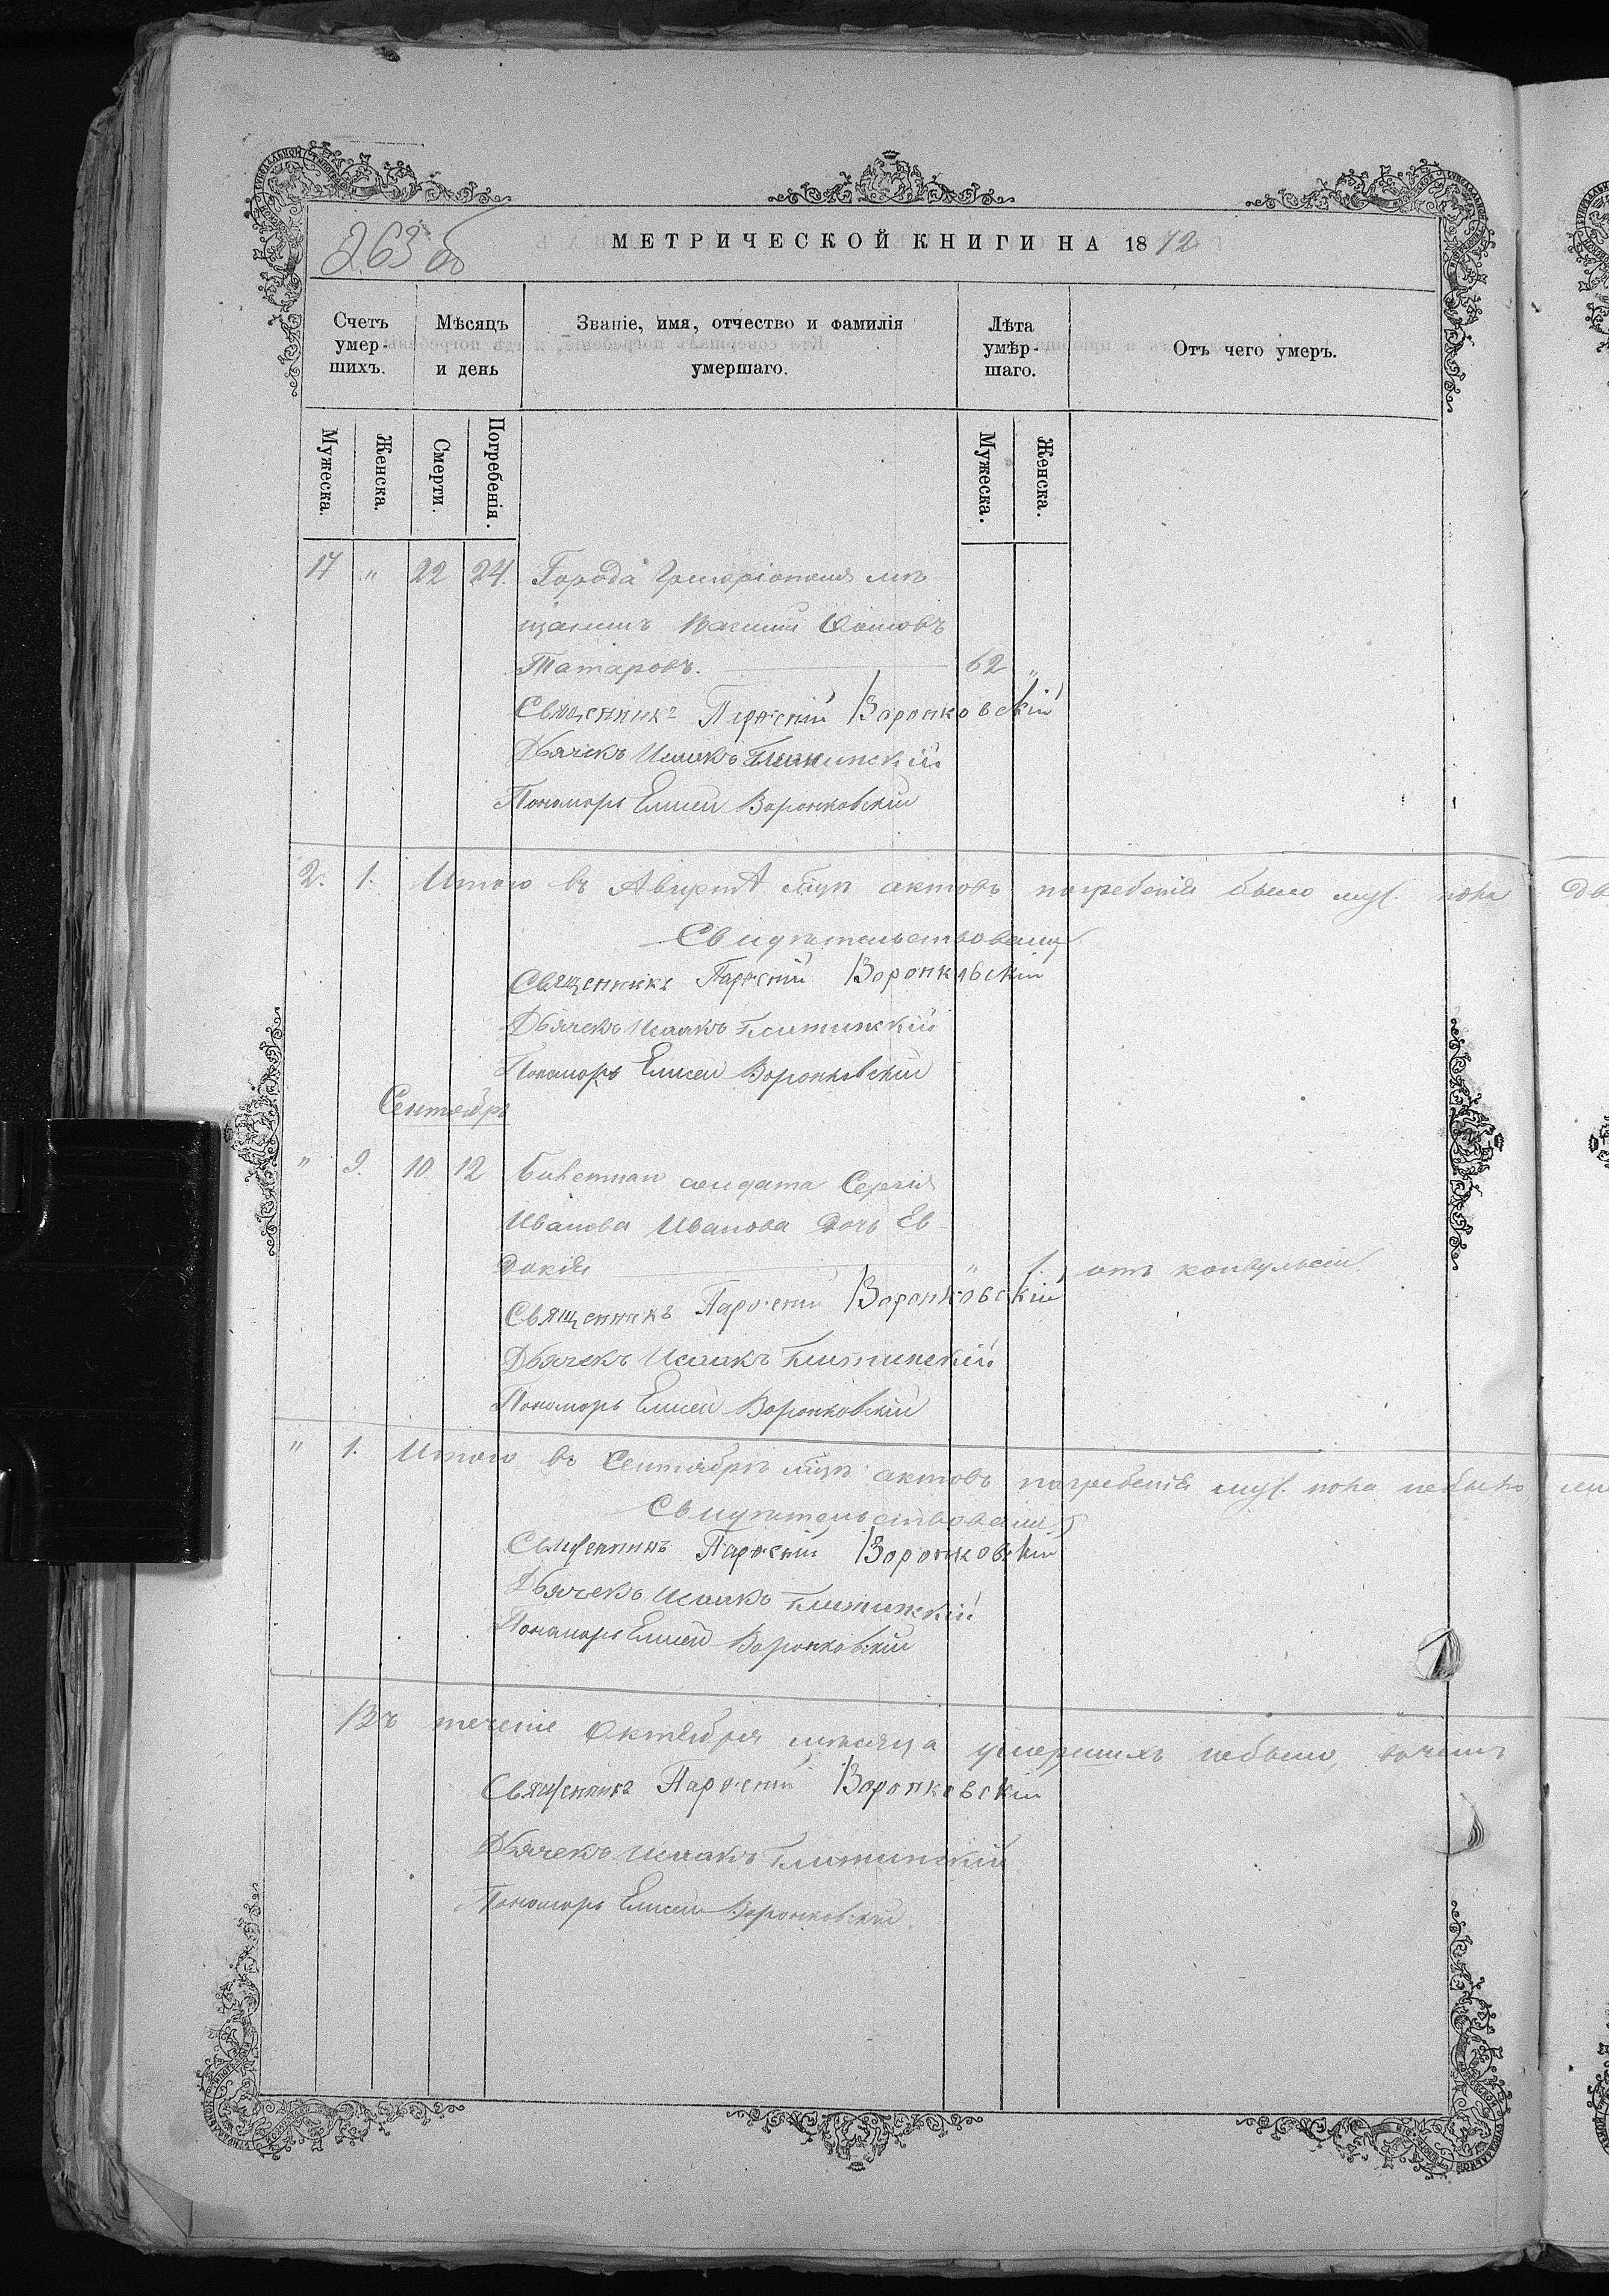 263 об
МЕТРИЧЕСКОЙ КНИГИ НА 1872
Счетъ умер-шихъ.
Мѣсяцъ и день
Званіе, имя, отчество и фамилія умершаго.
Лѣта умѣр-шаго.
Отъ чего умеръ.
Мужеска.
Женска.
Смерти.
Погребенія.
Мужеска.
Женска.
17 " 22 24. Города Григоріополя мѣ-
щанинъ Василій
Татаровъ. 62 "
Священникъ Парѳеній Воронковскій
Дьячекъ Исаакъ
Пономарь Елисей Воронковскій
2. 1. Итого въ Августѣ мцѣ актовъ погребенія было муж. пола дв
Свидѣтельствовали
Священникъ Парѳеній Воронковскій
Дьячекъ Исаакъ
Пономарь Елисей Воронковскій
Сентябрь
" 9. 10 12 Билетнаго солдата Сергія
Иванова Иванова дочь Ев-
докія " 1. отъ конвульсіи.
Священникъ Парѳеній Воронковскій
Дьячекъ Исаакъ
Пономарь Елисей Воронковскій
" 1. Итого въ Сентябрѣ мцѣ актовъ погребенія муж. пола небыло
Свидѣтельствовали
Священникъ Парѳеній Воронковскій
Дьячекъ Исаакъ
Пономарь Елисей Воронковскій
Въ теченіе Октября мѣсяца умершихъ небыло, въ чемъ
Священникъ Парѳеній Воронковскій
Дьячекъ Исаакъ
Пономарь Елисей Воронковскій